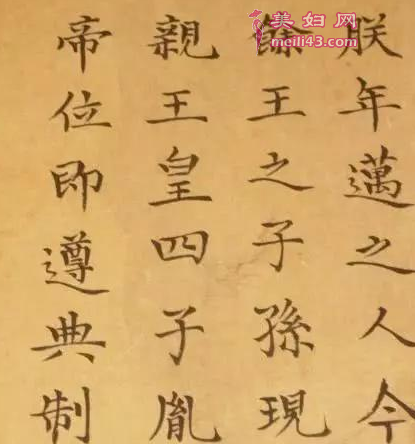 美妇网
meili43.com
朕年邁之人今
餘王之子孫現
親王皇四子胤
帝位即遵典制